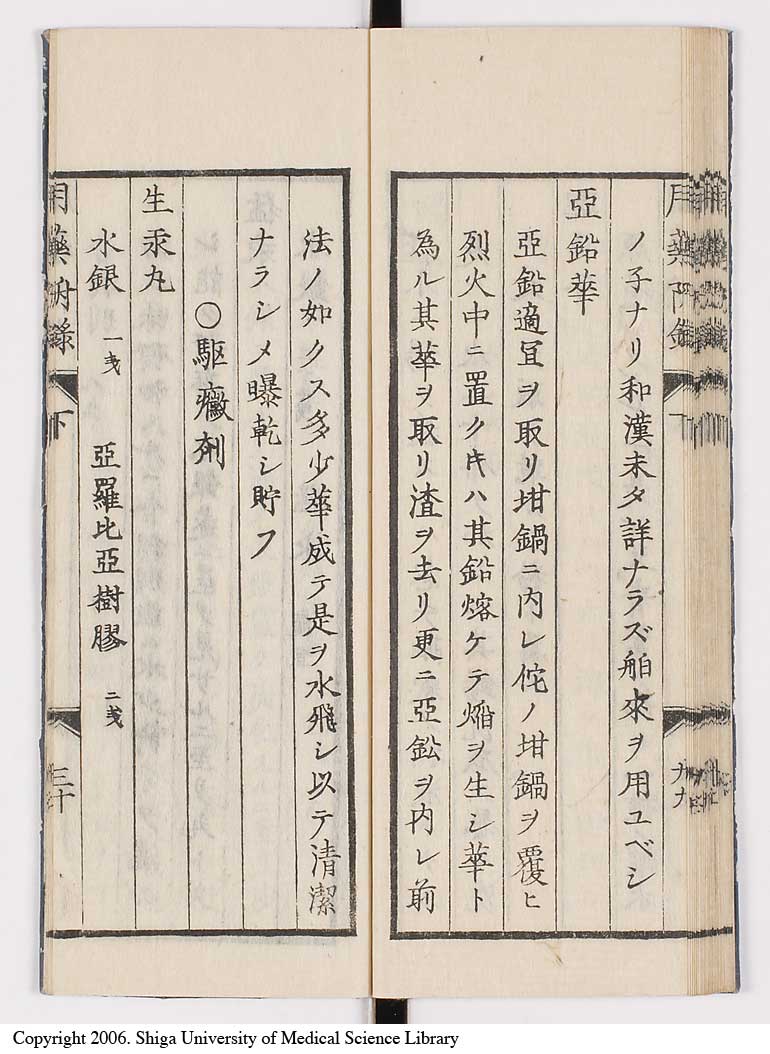 ノ子ナリ和漢未タ詳ナラズ舶來ヲ用ユベシ
亞鉛華
亞鉛適冝ヲ取リ坩鍋ニ内レ侘ノ坩鍋ヲ覆ヒ
烈火中ニ置ク𪜈ハ其鉛熔ケテ熖ヲ生シ華ト
為ル其華ヲ取リ渣ヲ去リ更ニ亞鈆ヲ内レ前
法ノ如クス多少華成テ是ヲ水飛シ以テ清潔
ナラシメ曝乾シ貯フ
〇駆黴剤
生汞丸
水銀 一戔 亞羅比亞樹膠 二戔
用藥附録 下 三十
Copyright 2006. Shiga University of Medical Science Library